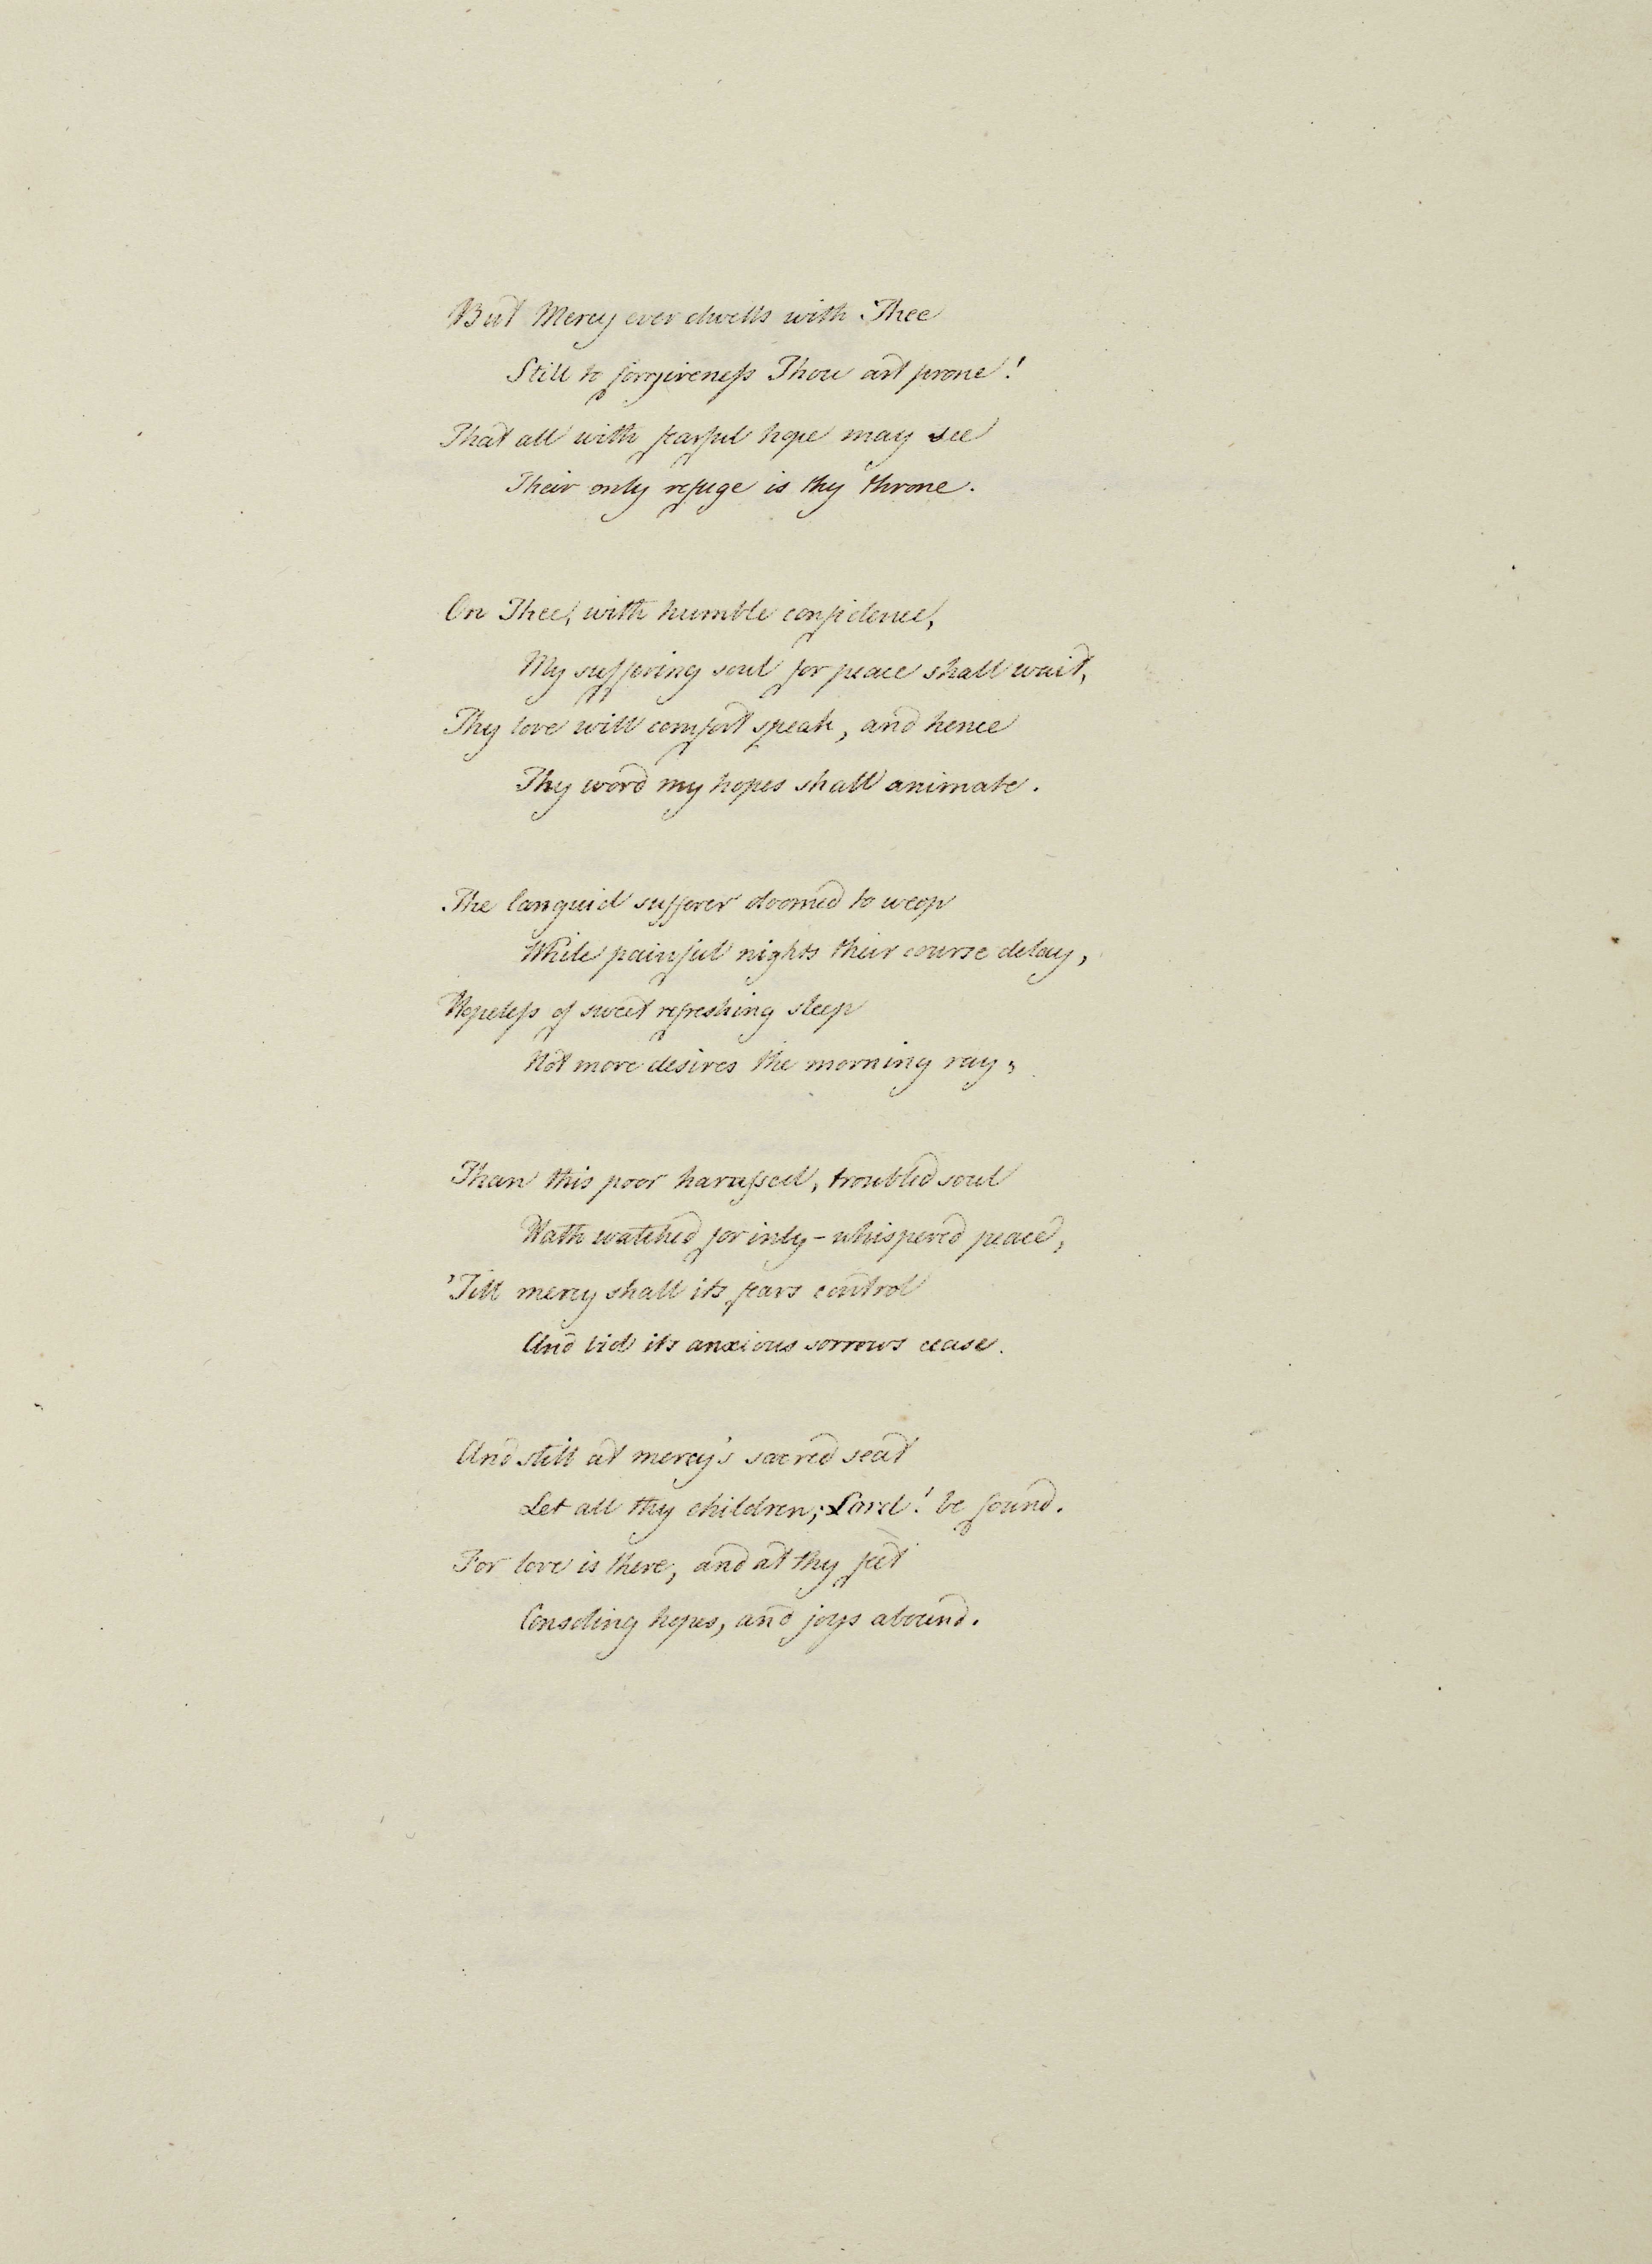 But Mercy ever dwells with Thee
Still to forgiveneſs Thou art prone!
That all with fearful hope may see
Their only refuge is thy throne.
On Thee, with humble confidence,
My suffering soul for peace shall wait,
Thy love will comfort speak, and hence
Thy word my hopes shall animate.
The languid sufferer doomed to weep
While painful nights their course delay,
Hopeleſs of sweet refreshing sleep
Not more desires the morning ray,
Than this poor haraſsed, troubled soul
Hath watched for inly-whispered peace,
'Till mercy shall its fears control
And bid its anxious sorrows cease.
And still at mercy's sacred seat
Let all thy children, Lord! be found.
For love is there, and at thy feet
Consoling hopes, and joys abound.